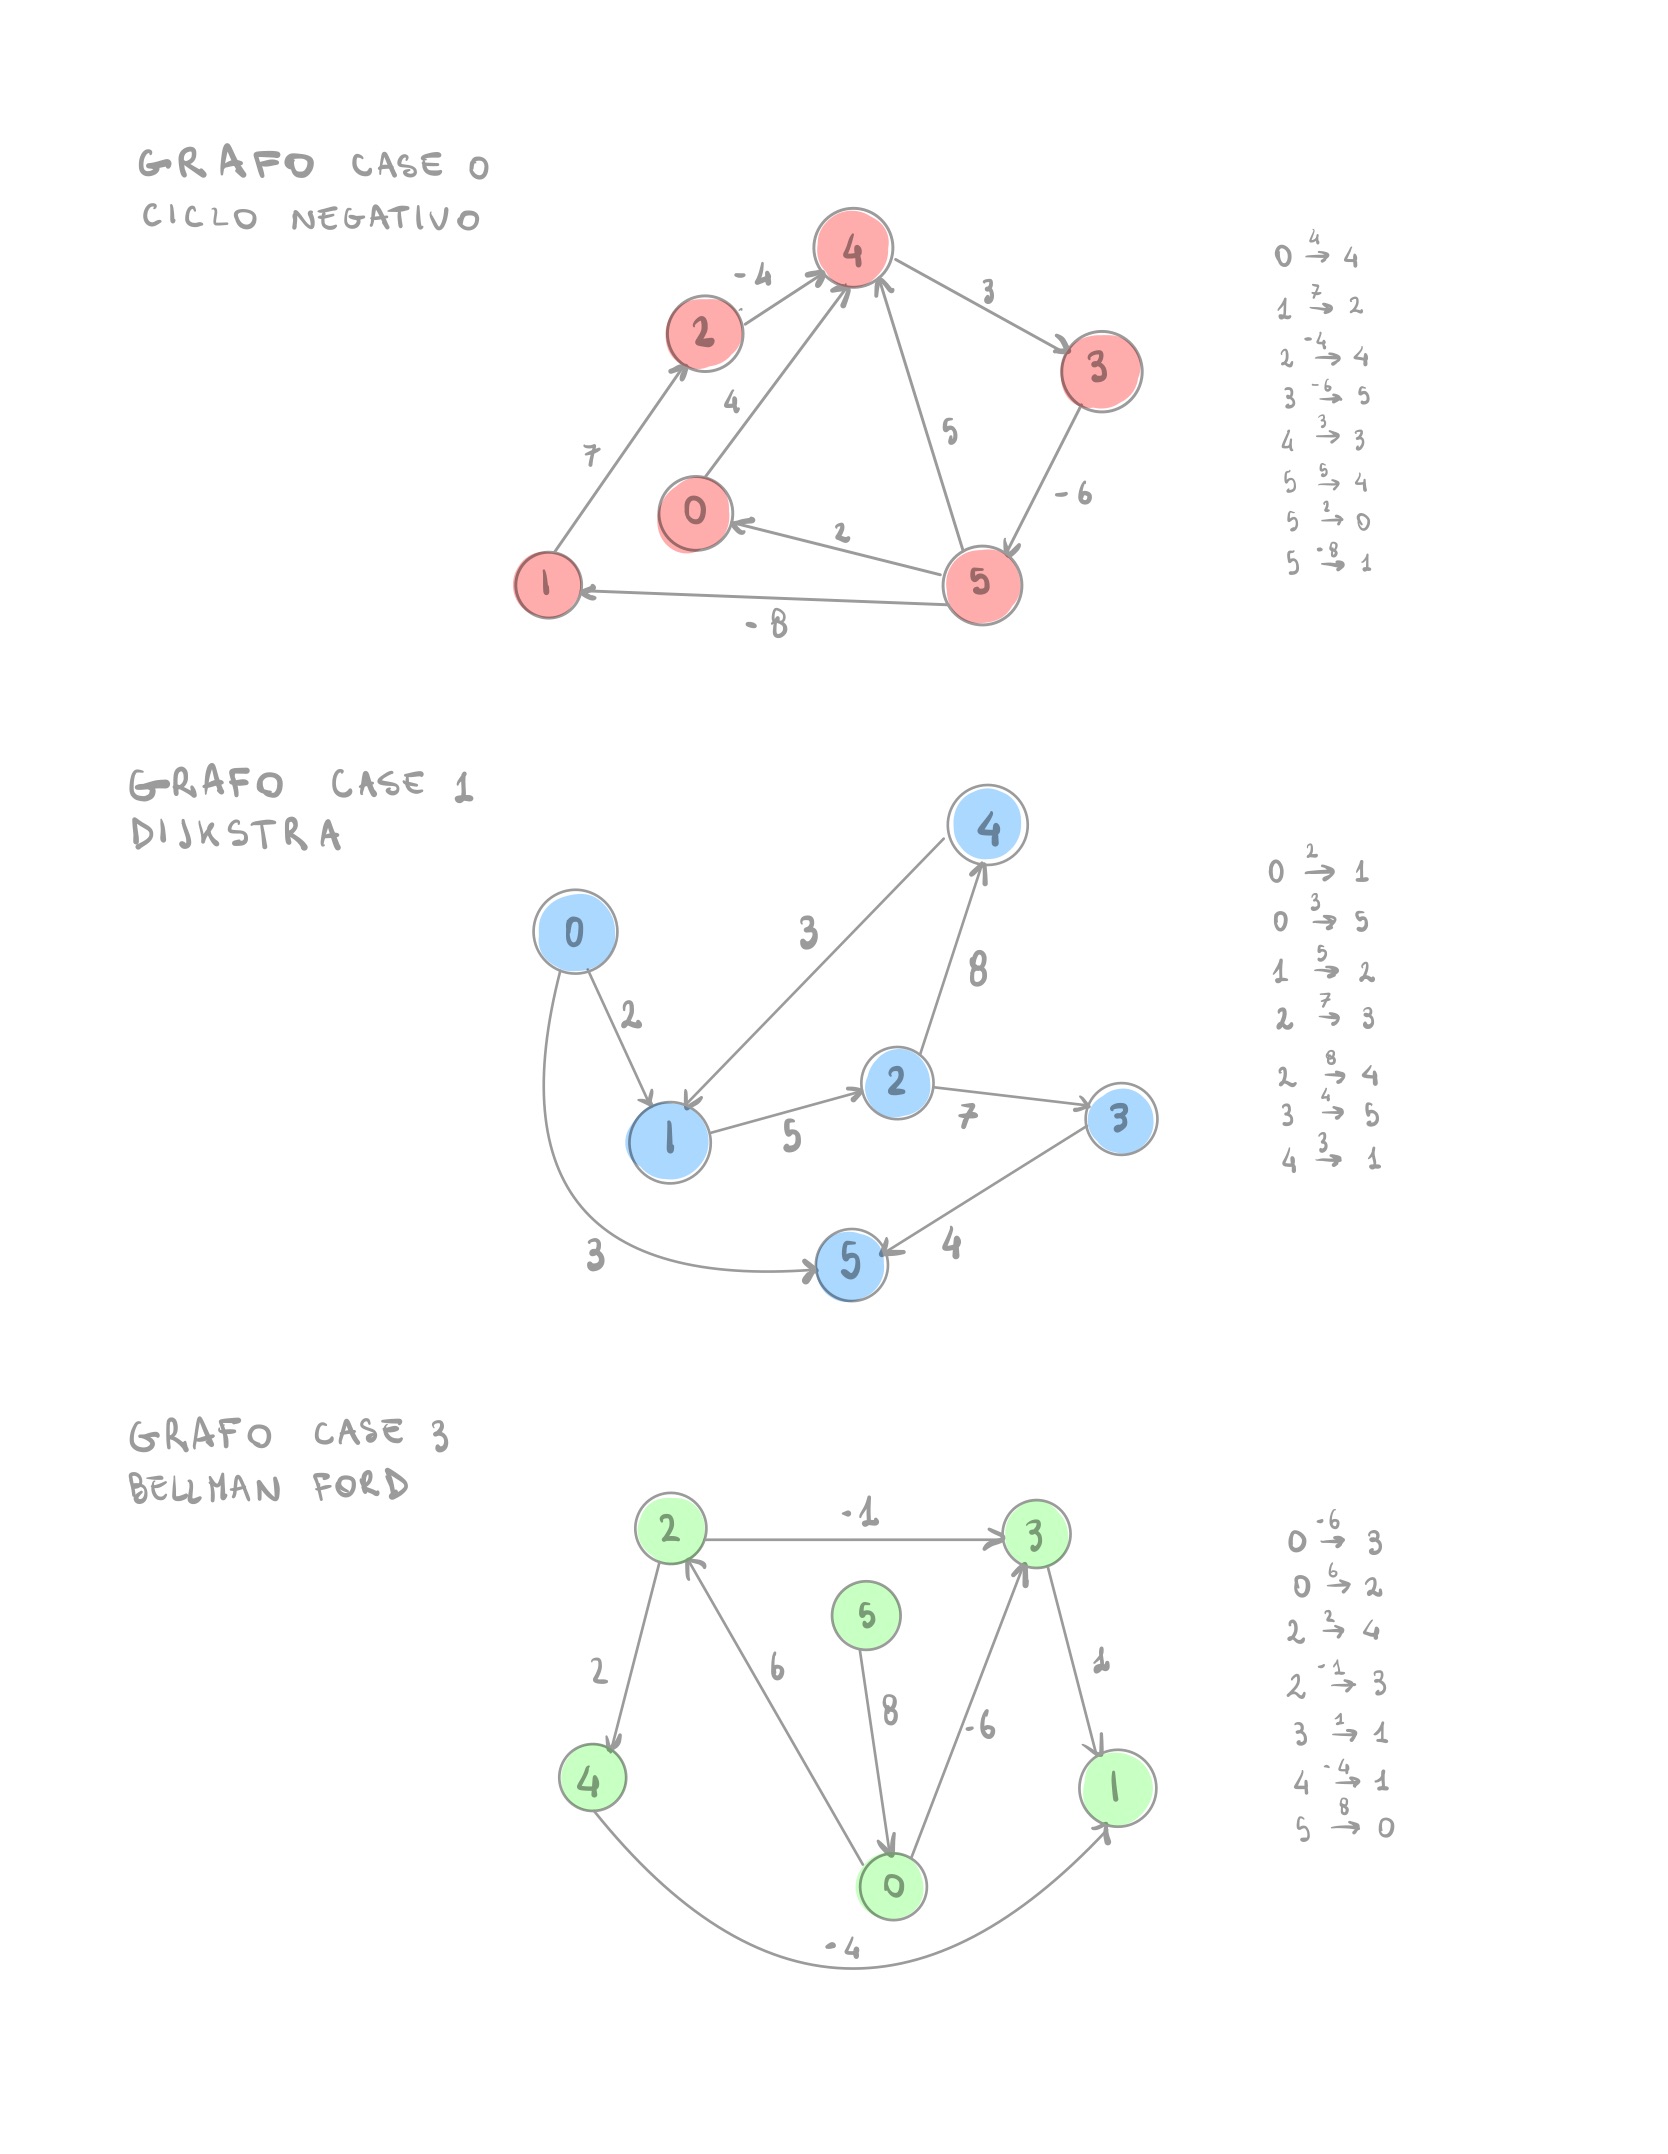 GRAFO CASE 0
CICLO NEGATIVO
4
-4
3
2
3
4
5
7
-6
0
2
1
5
-8
0 4→ 4
1 7→ 2
2 -4→ 4
3 -6→ 5
4 3→ 3
5 5→ 4
5 2→ 0
5 -8→ 1
GRAFO CASE 1
DIJKSTRA
4
0
3
8
2
2
1
5
7
3
3
5
4
0 2→ 1
0 3→ 5
1 5→ 2
2 7→ 3
2 8→ 4
3 4→ 5
4 3→ 1
GRAFO CASE 3
BELLMAN FORD
2
-1
3
5
2
6
8
-6
1
4
1
0
-4
0 -6→ 3
0 6→ 2
2 2→ 4
2 -1→ 3
3 1→ 1
4 -4→ 1
5 8→ 0